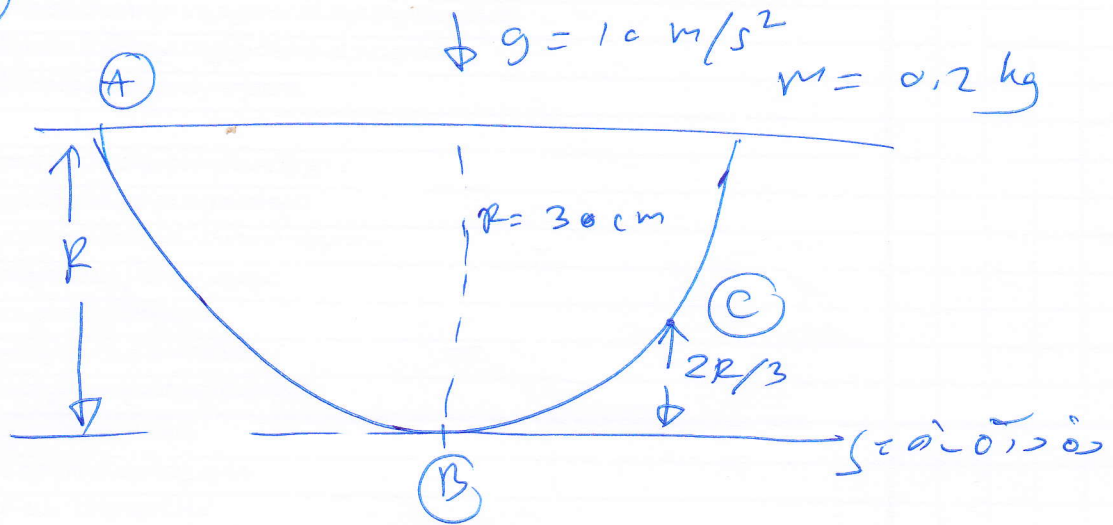 g = 10 m/s²
m = 0.2 kg
A
R
R = 30 cm
C
2R/3
B